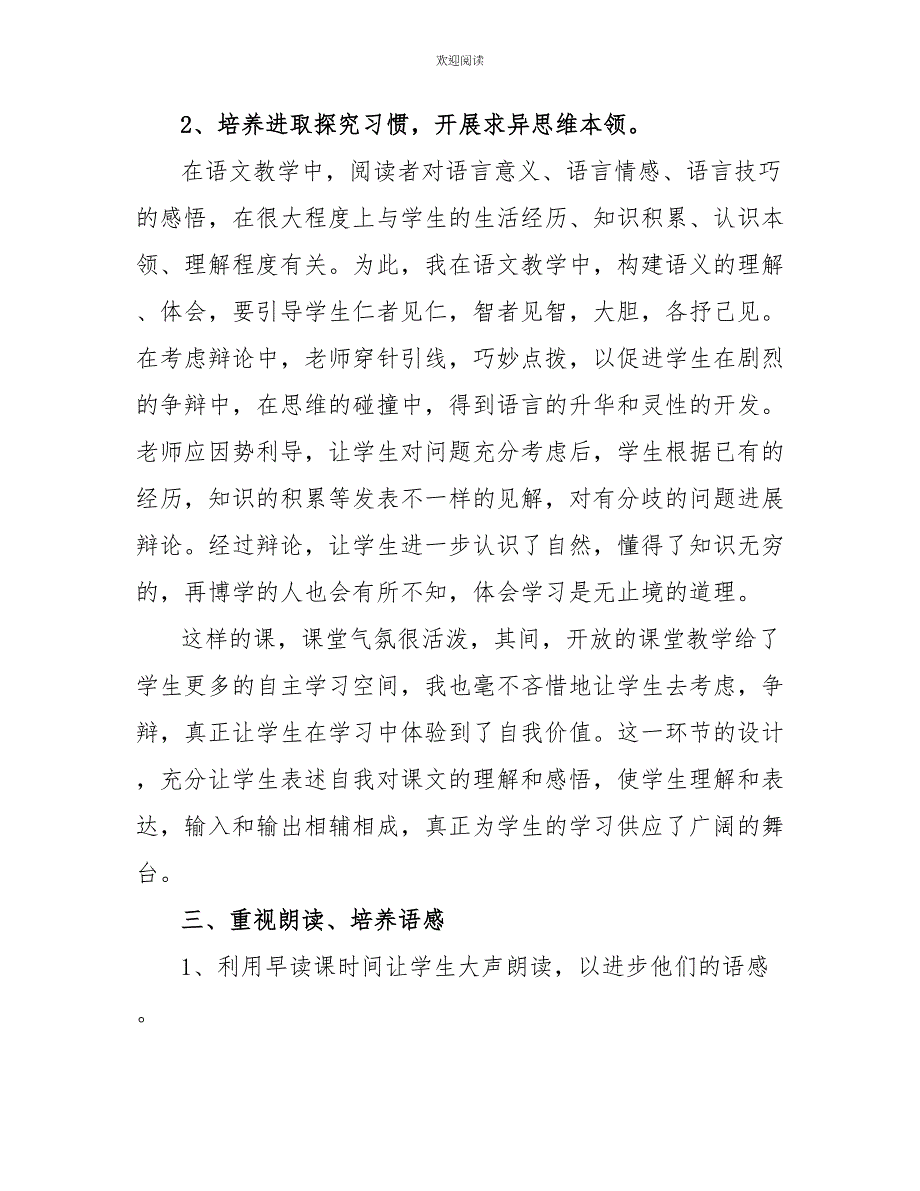 欢迎阅读
2、培养进取探究习惯，开展求异思维本领。
在语文教学中，阅读者对语言意义、语言情感、语言技巧
的感悟，在很大程度上与学生的生活经历、知识积累、认识本
领、理解程度有关。为此，我在语文教学中，构建语义的理解
、体会，要引导学生仁者见仁，智者见智，大胆，各抒己见。
在考虑辩论中，老师穿针引线，巧妙点拨，以促进学生在剧烈
的争辩中，在思维的碰撞中，得到语言的升华和灵性的开发。
老师应因势利导，让学生对问题充分考虑后，学生根据已有的
经历，知识的积累等发表不一样的见解，对有分歧的问题进展
辩论。经过辩论，让学生进一步认识了自然，懂得了知识无穷
的，再博学的人也会有所不知，体会学习是无止境的道理。
这样的课，课堂气氛很活泼，其间，开放的课堂教学给了
学生更多的自主学习空间，我也毫不吝惜地让学生去考虑，争
辩，真正让学生在学习中体验到了自我价值。这一环节的设计
，充分让学生表述自我对课文的理解和感悟，使学生理解和表
达，输入和输出相辅相成，真正为学生的学习供应了广阔的舞
台。
三、重视朗读、培养语感
1、利用早读课时间让学生大声朗读，以进步他们的语感
。